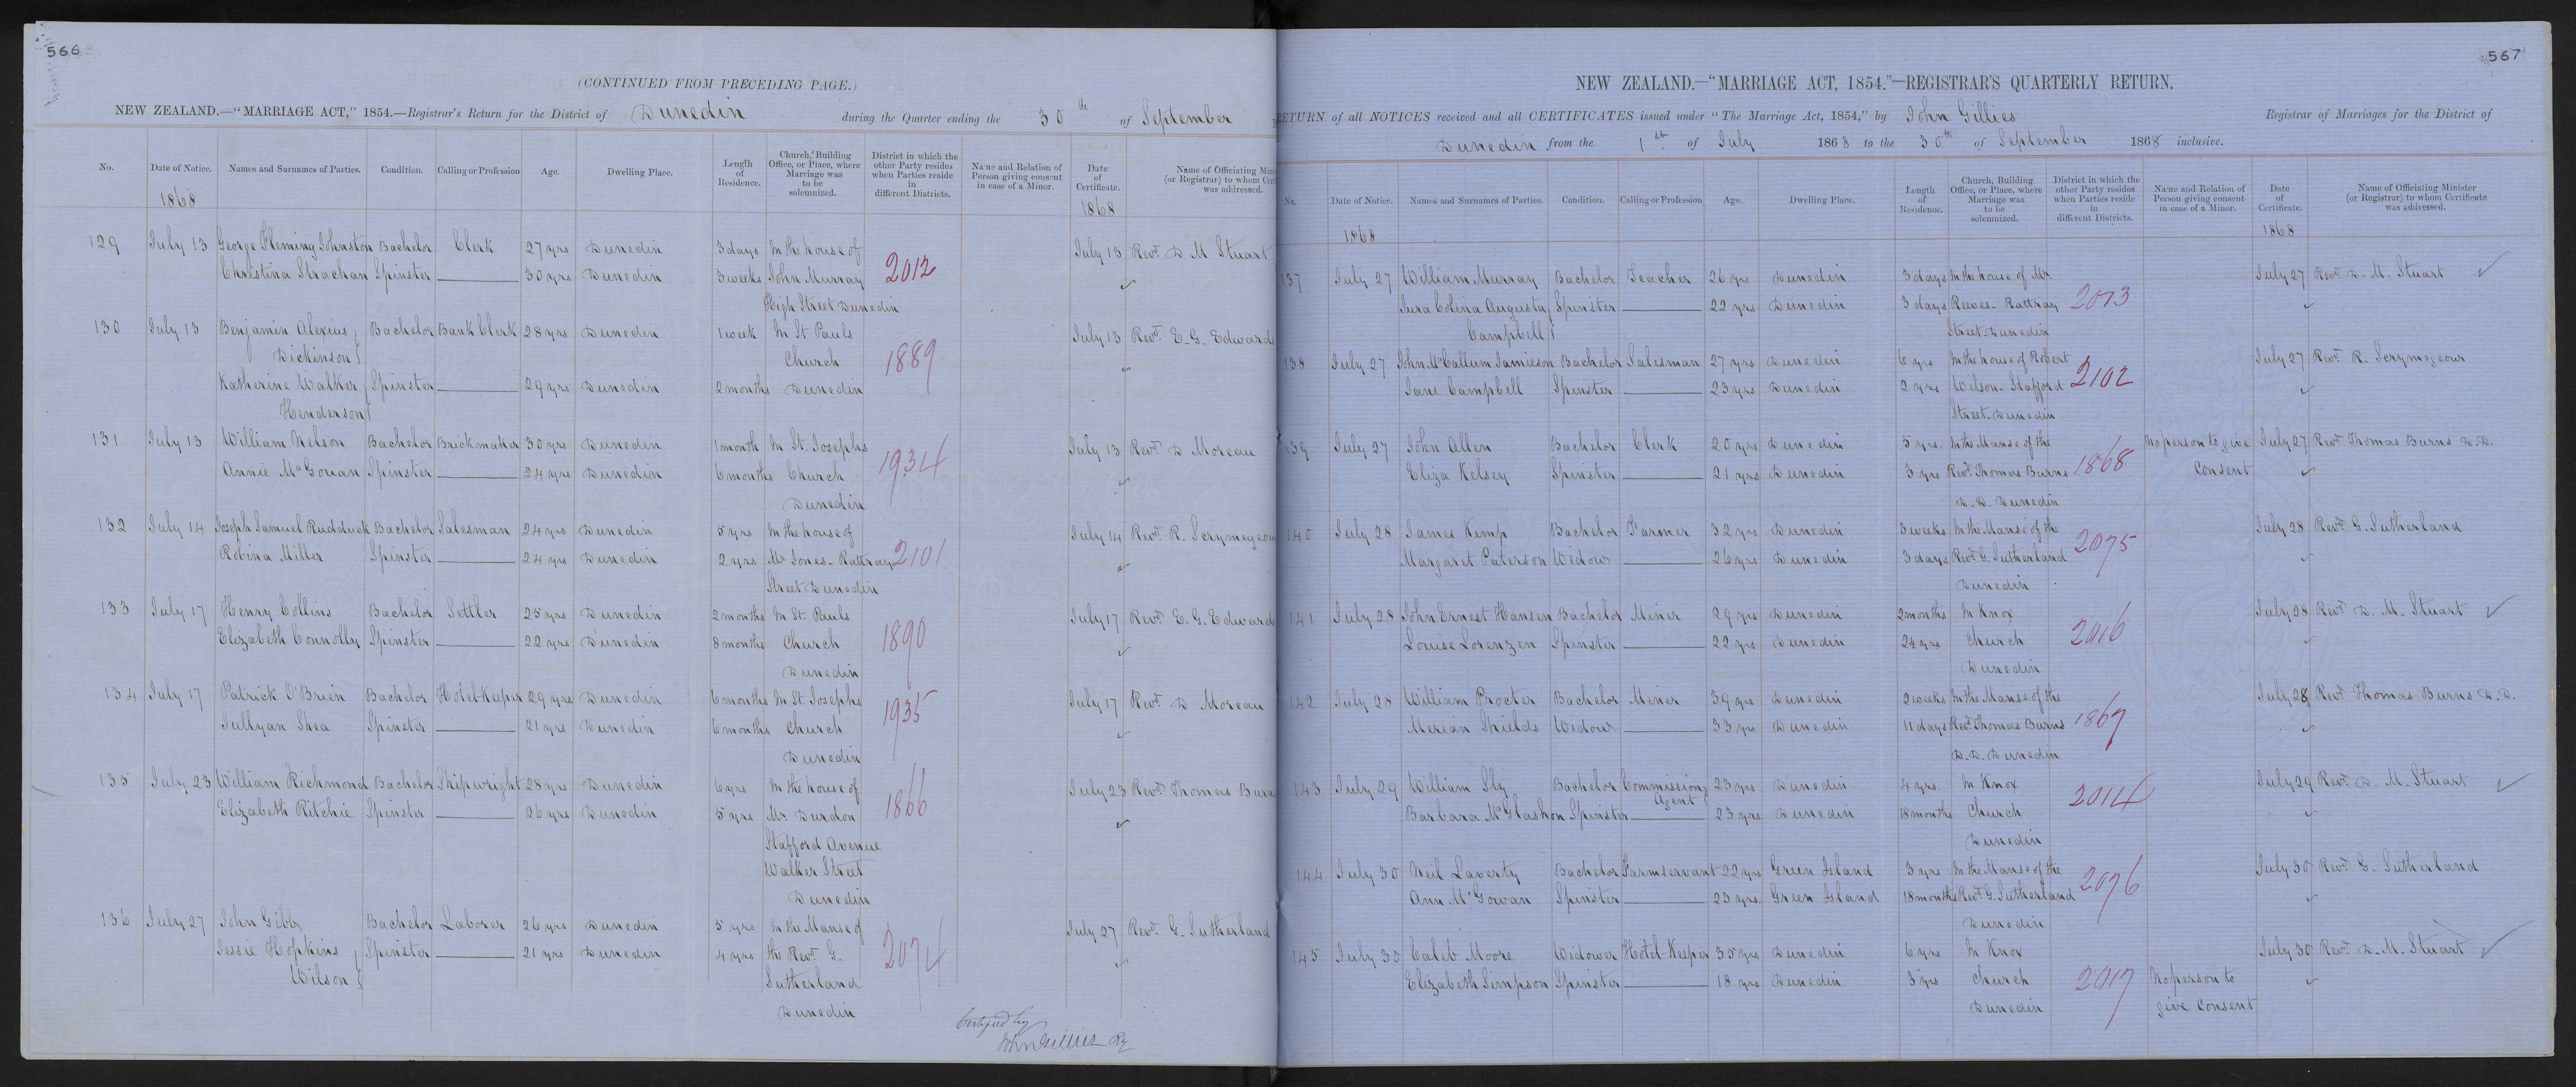 566
(CONTINUED FROM PRECEDING PAGE.)
NEW ZEALAND.—"MARRIAGE ACT," 1854.—Registrar's Return for the District of Dunedin during the Quarter ending the 30th of September
No. Date of Notice. Names and Surnames of Parties. Condition. Calling or Profession Age. Dwelling Place. Length of Residence. Church, Building Office, or Place, where Marriage was to be solemnized. District in which the other Party resides when Parties reside in different Districts. Name and Relation of Person giving consent in case of a Minor. Date of Certificate. Name of Officiating (or Registrar) to whom was addressed.
1868 1868
129 July 13 George Fleming Johnston Bachelor Clerk 27 yrs Dunedin 3 days In the house of July 13 Revd. D M Stuart
Christina Strachan Spinster 30 yrs Dunedin 3 weeks John Murray 2012
High Street Dunedin
130 July 13 Benjamin Alexius Bachelor Bank Clerk 28 yrs Dunedin 1 week In St Pauls July 13 Revd. E. G. Edward
Dickinson Church 1889
Katherine Walker Spinster 29 yrs Dunedin 2 months Dunedin
Henderson
131 July 13 William Nelson Bachelor Brickmaker 30 yrs Dunedin 1 month In St. Josephs July 13 Revd. D Moreau
Annie McGowan Spinster 24 yrs Dunedin 6 months Church 1934
Dunedin
132 July 14 Joseph Samuel Rudduck Bachelor Salesman 24 yrs Dunedin 5 yrs In the house of July 14 Revd. R. Scrymegeou
Robina Miller Spinster 24 yrs Dunedin 2 yrs Mr Jones - Rattray 2101
Street Dunedin
133 July 17 Henry Collins Bachelor Settler 25 yrs Dunedin 2 months In St. Pauls July 17 Revd. E. G. Edward
Elizabeth Connolly Spinster 22 yrs Dunedin 8 months Church 1890
Dunedin
134 July 17 Patrick O'Brien Bachelor Hotel Keeper 29 yrs Dunedin 6 months In St. Josephs July 17 Revd. D Moreau
Jullyan Shea Spinster 21 yrs Dunedin 6 months Church 1935
Dunedin
135 July 23 William Richmond Bachelor Shipwright 28 yrs Dunedin 6 yrs In the house of July 23 Revd. Thomas Burn
Elizabeth Ritchie Spinster 26 yrs Dunedin 5 yrs Mr. Durdon 1866
Stafford Avenue
Walker Street
Dunedin
136 July 27 John Gibb Bachelor Laborer 26 yrs Dunedin 5 yrs In the Manse of July 27 Revd. G. Sutherland
Jessie Hopkins Spinster 21 yrs Dunedin 4 yrs the Revd. G. 2074
Wilson Sutherland
Dunedin
Certified by
John Gillies Rg
567
NEW ZEALAND.—"MARRIAGE ACT, 1854."—REGISTRAR'S QUARTERLY RETURN.
RETURN of all NOTICES received and all CERTIFICATES issued under "The Marriage Act, 1854," by John Gillies Registrar of Marriages for the District of
Dunedin from the 1st of July 1868 to the 30th of September 1868 inclusive.
No. Date of Notice. Names and Surnames of Parties. Condition. Calling or Profession Age. Dwelling Place. Length of Residence. Church, Building Office, or Place, where Marriage was to be solemnized. District in which the other Party resides when Parties reside in different Districts. Name and Relation of Person giving consent in case of a Minor. Date of Certificate. Name of Officiating Minister (or Registrar) to whom Certificate was addressed.
1868 1868
137 July 27 William Murray Bachelor Teacher 26 yrs Dunedin 3 days In the house of Mr. July 27 Revd. D. M. Stuart
Jura Colina Augusta Spinster 22 yrs Dunedin 3 days Reeves - Rattray 2013
Campbell Street - Dunedin
138 July 27 John McCallum Jamieson Bachelor Salesman 27 yrs Dunedin 6 yrs In the house of Robert July 27 Revd. R. Scrymegeour
Jane Campbell Spinster 23 yrs Dunedin 2 yrs Wilson - Stafford 2102
Street - Dunedin
139 July 27 John Allen Bachelor Clerk 20 yrs Dunedin 5 yrs. In the Manse of the No person to give July 27 Revd. Thomas Burns D.D.
Eliza Kelsey Spinster 21 yrs Dunedin 3 yrs Revd. Thomas Burns 1868 Consent
D.D. Dunedin
140 July 28 James Kemp Bachelor Farmer 32 yrs Dunedin 3 weeks In the Manse of the July 28 Revd. G. Sutherland
Margaret Paterson Widow 26 yrs Dunedin 3 days Revd. G. Sutherland 2075
Dunedin
141 July 28 John Ernest Hansen Bachelor Miner 29 yrs Dunedin 2 months In Knox July 28 Revd. D. M. Stuart
Louise Lorenzen Spinster 22 yrs Dunedin 2½ yrs Church 2016
Dunedin
142 July 28 William Procter Bachelor Miner 39 yrs Dunedin 2 weeks In the Manse of the July 28 Revd. Thomas Burns D.D.
Merian Shields Widow 33 yrs Dunedin 11 days Revd. Thomas Burns 1867
D.D. Dunedin
143 July 29 William Sly Bachelor Commission Agent 23 yrs Dunedin 4 yrs. In Knox July 29 Revd. D. M. Stuart
Barbara McGlashon Spinster 23 yrs Dunedin 18 months Church 2014
Dunedin
144 July 30 Neil Laverty Bachelor Farmservant 22 yrs Green Island 3 yrs In the Manse of the July 30 Revd. G. Sutherland
Ann McGowan Spinster 23 yrs. Green Island 18 months Revd. G. Sutherland 2076
Dunedin
145 July 30 Caleb Moore Widower Hotel Keeper 35 yrs Dunedin 6 yrs In Knox July 30 Revd. D. M. Stuart
Elizabeth Simpson Spinster 18 yrs Dunedin 3 yrs Church 2017 No person to
Dunedin give Consent